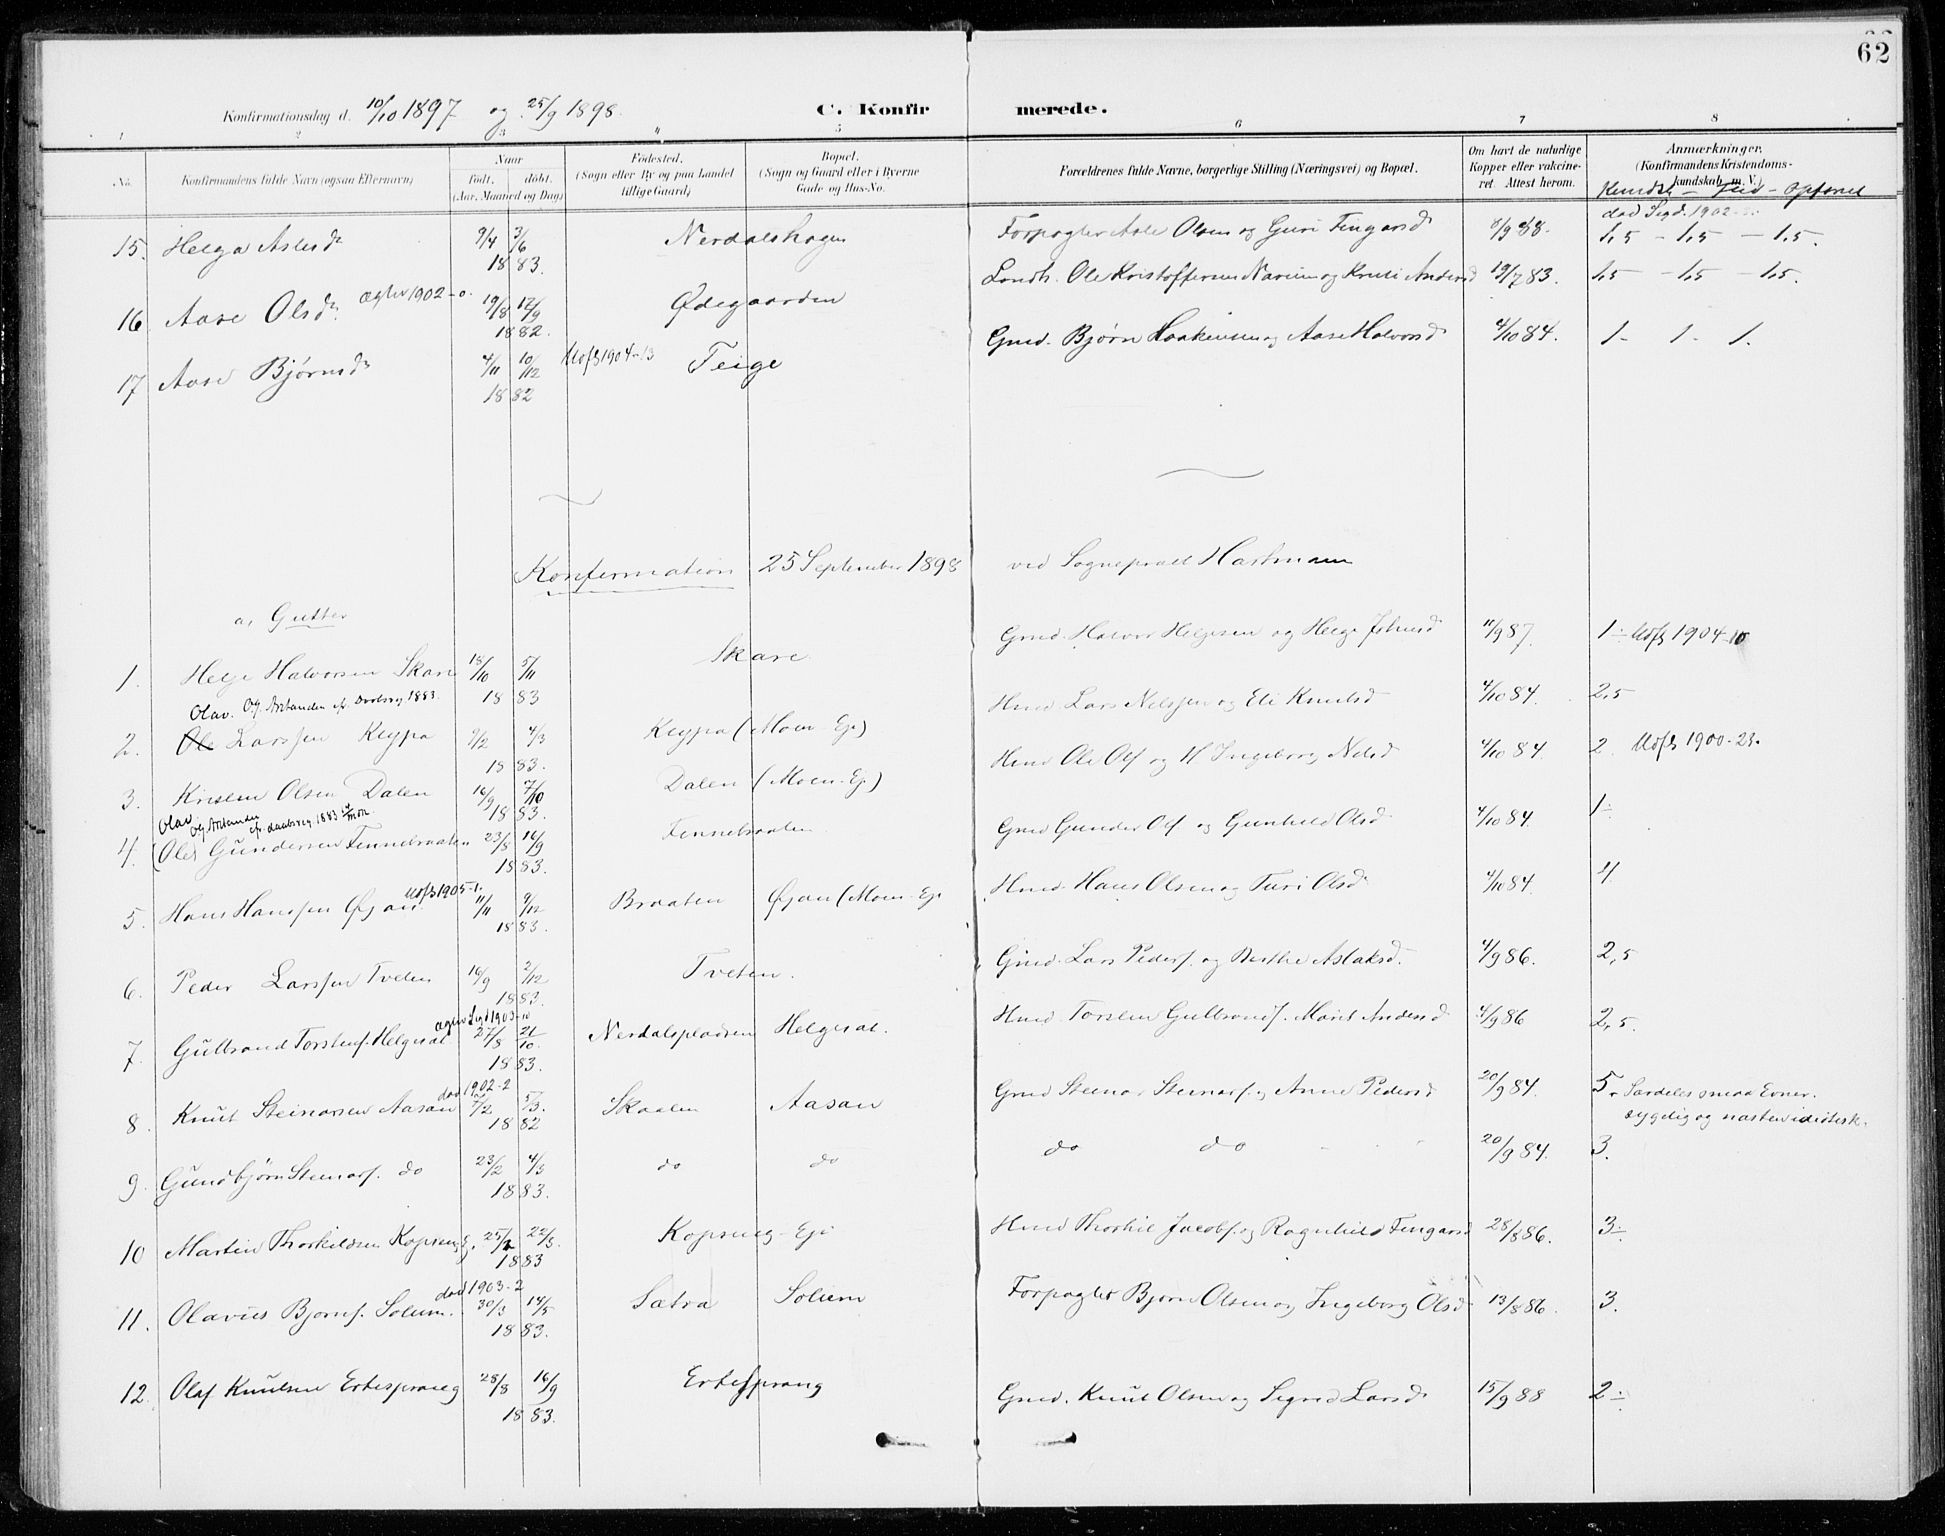 62
Konfirmationsdag d. 10/10 1897 og 25/9 1898.
C. Konfirmerede.
1 2 3 4 5 6 7 8
No. Konfirmandens fulde Navn (ogsaa Efternavn) Naar født, døbt. (Aar, Maaned og Dag) Fødested. (Sogn eller By og paa Landet tillige Gaard) Bopæl. (Sogn og Gaard eller i Byerne Gade og Hus-No. Forældrenes fulde Navne, borgerlige Stilling (Næringsvei) og Bopæl. Om havt de naturlige Kopper eller vakcineret. Attest herom. Anmærkninger. (Konfirmandens Kristendomskundskab m. V.)
Kundsk. - Flid - Opførsel
daab Sigd. 1902
15. Helga Aslesd 9/4 3/6 1883. Nerdalshagen Forpagter Asle Olsen og Guri Fingarsd 8/9 88. 1,5 - 1,5 - 1,5.
16. Aase Olsdr. 19/8 17/9 1882. Ødegaarden Landh. Ole Kristoffersen Narum og Kristi Andersd 19/7 83. 1,5 - 1,5 - 1,5.
17 Aase Bjørnsdr 4/11 10/12 1882 Udfl 1904-13 Teige Gmd. Bjørn Haakensen og Aase Halvorsd 4/10 84. 1 - 1 - 1.
Konfirmation 25 September 1898 ved Sogneprest Hartmann
a, Gutter
1. Helge Halvorsen Skare 18/10 5/11 1883 Skare. Gmd. Halvor Helgesen og Helge Johnsd 11/9 87. 1 ÷ Udfl 1904-10
Olav. Og. Arstanden ef. daabsreg 1883.
2. Ole Larssen Kleypa 9/2 4/3 1883. Kleypa (Moen Eje) Hmd Lars Nelssen og Eli Knutsd 4/10 84. 2,5
3. Kristen Olsen Dalen 16/9 7/10 1883. Dalen (Moen Ej.) Hmd Ole Ols og H Ingeborg Nelsd 4/10 84. 2 Udfl 1900-23.
Olav Og Arstanden ef. daabsreg. 1883
4. (Ole) Gundersen Finnebraaten 23/8 16/9 1883. Finnebraaten Gmd Gunder Ols og Gunhild Olsd 4/10 84. 1 ÷
Udfl 1905-1.
5. Hans Hanssen Øyan. 11/11 9/12 1883. Braaten Øyan (Moen Eje Hmd. Hans Olsen og Turi Olsd 4/10 84. 4
6. Peder Larssen Tveten 16/9 2/12 1883. Tveten. Gmd. Lars Peders. og Berthe Aslaksd. 4/9 86. 2,5
7. Gulbrand Torstens. Helgesat 27/8 21/10. 1883. Nerdalspladsen Helgesat. Hmd Torsten Gulbrands. Marit Andersd 4/9 86 2,5.
daab 1902-2
8. Knut Steinarsen Aasan 7/2 5/3. 1882 Skaalen Aasan Gmd Steinar Steinars. og Anne Pedersd 20/9 84. 5. Særdeles smaa Evner. sygelig og næsten idiotisk.
9. Gundbjørn Steinars. do 23/2 4/3 1883. do do do do 20/9 84. 3.
10 Martin Thorkildsen Kopseng 25/2 22/3. 1883 Kopseng-Eje Hmd Thorkil Jacobs. og Ragnhild Fingarsd 28/8 86. 3 ÷
daab 1903-2
11. Olavus Bjorns. Solum. 30/3 14/5 1883. Sætra Solum Forpagter Bjørn Olsen og Ingeborg Olsd 13/8 86. 3.
12. Olaf Knutsen Ertesprang 28/8 16/9 1883. Ertesprang Gmd. Knut Olsen og Sigrid Larsd 15/9 88 2 ÷